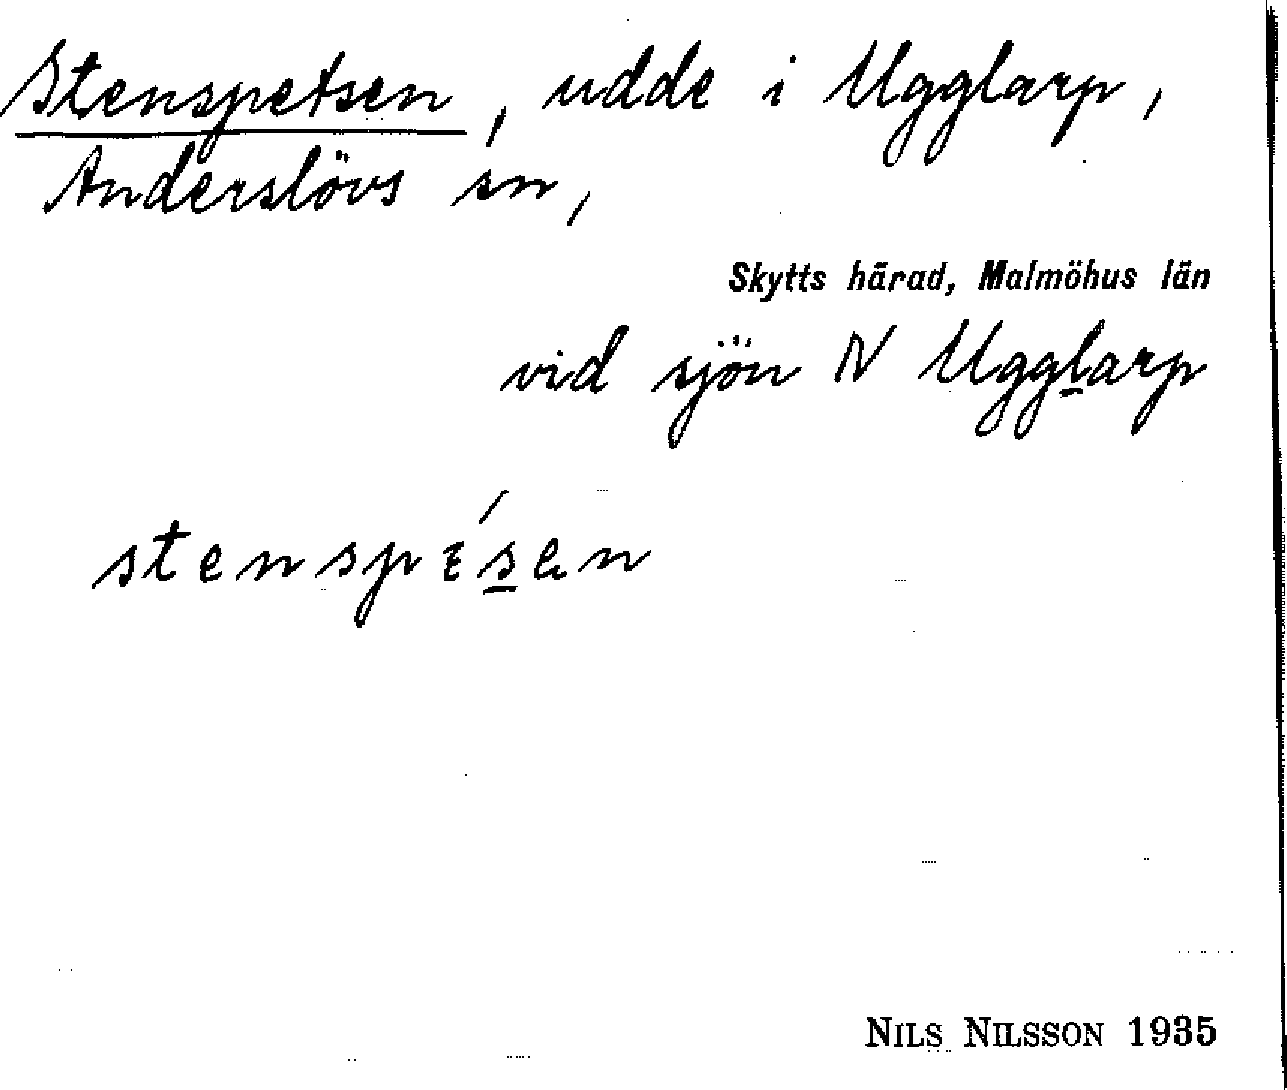 Stenspetsen, udde i Ugglarp,
Anderslövs sn,
Skytts härad, Malmöhus län
vid sjön N Ugglarp
stenspɛ́s̲ən
NILS NILSSON 1935